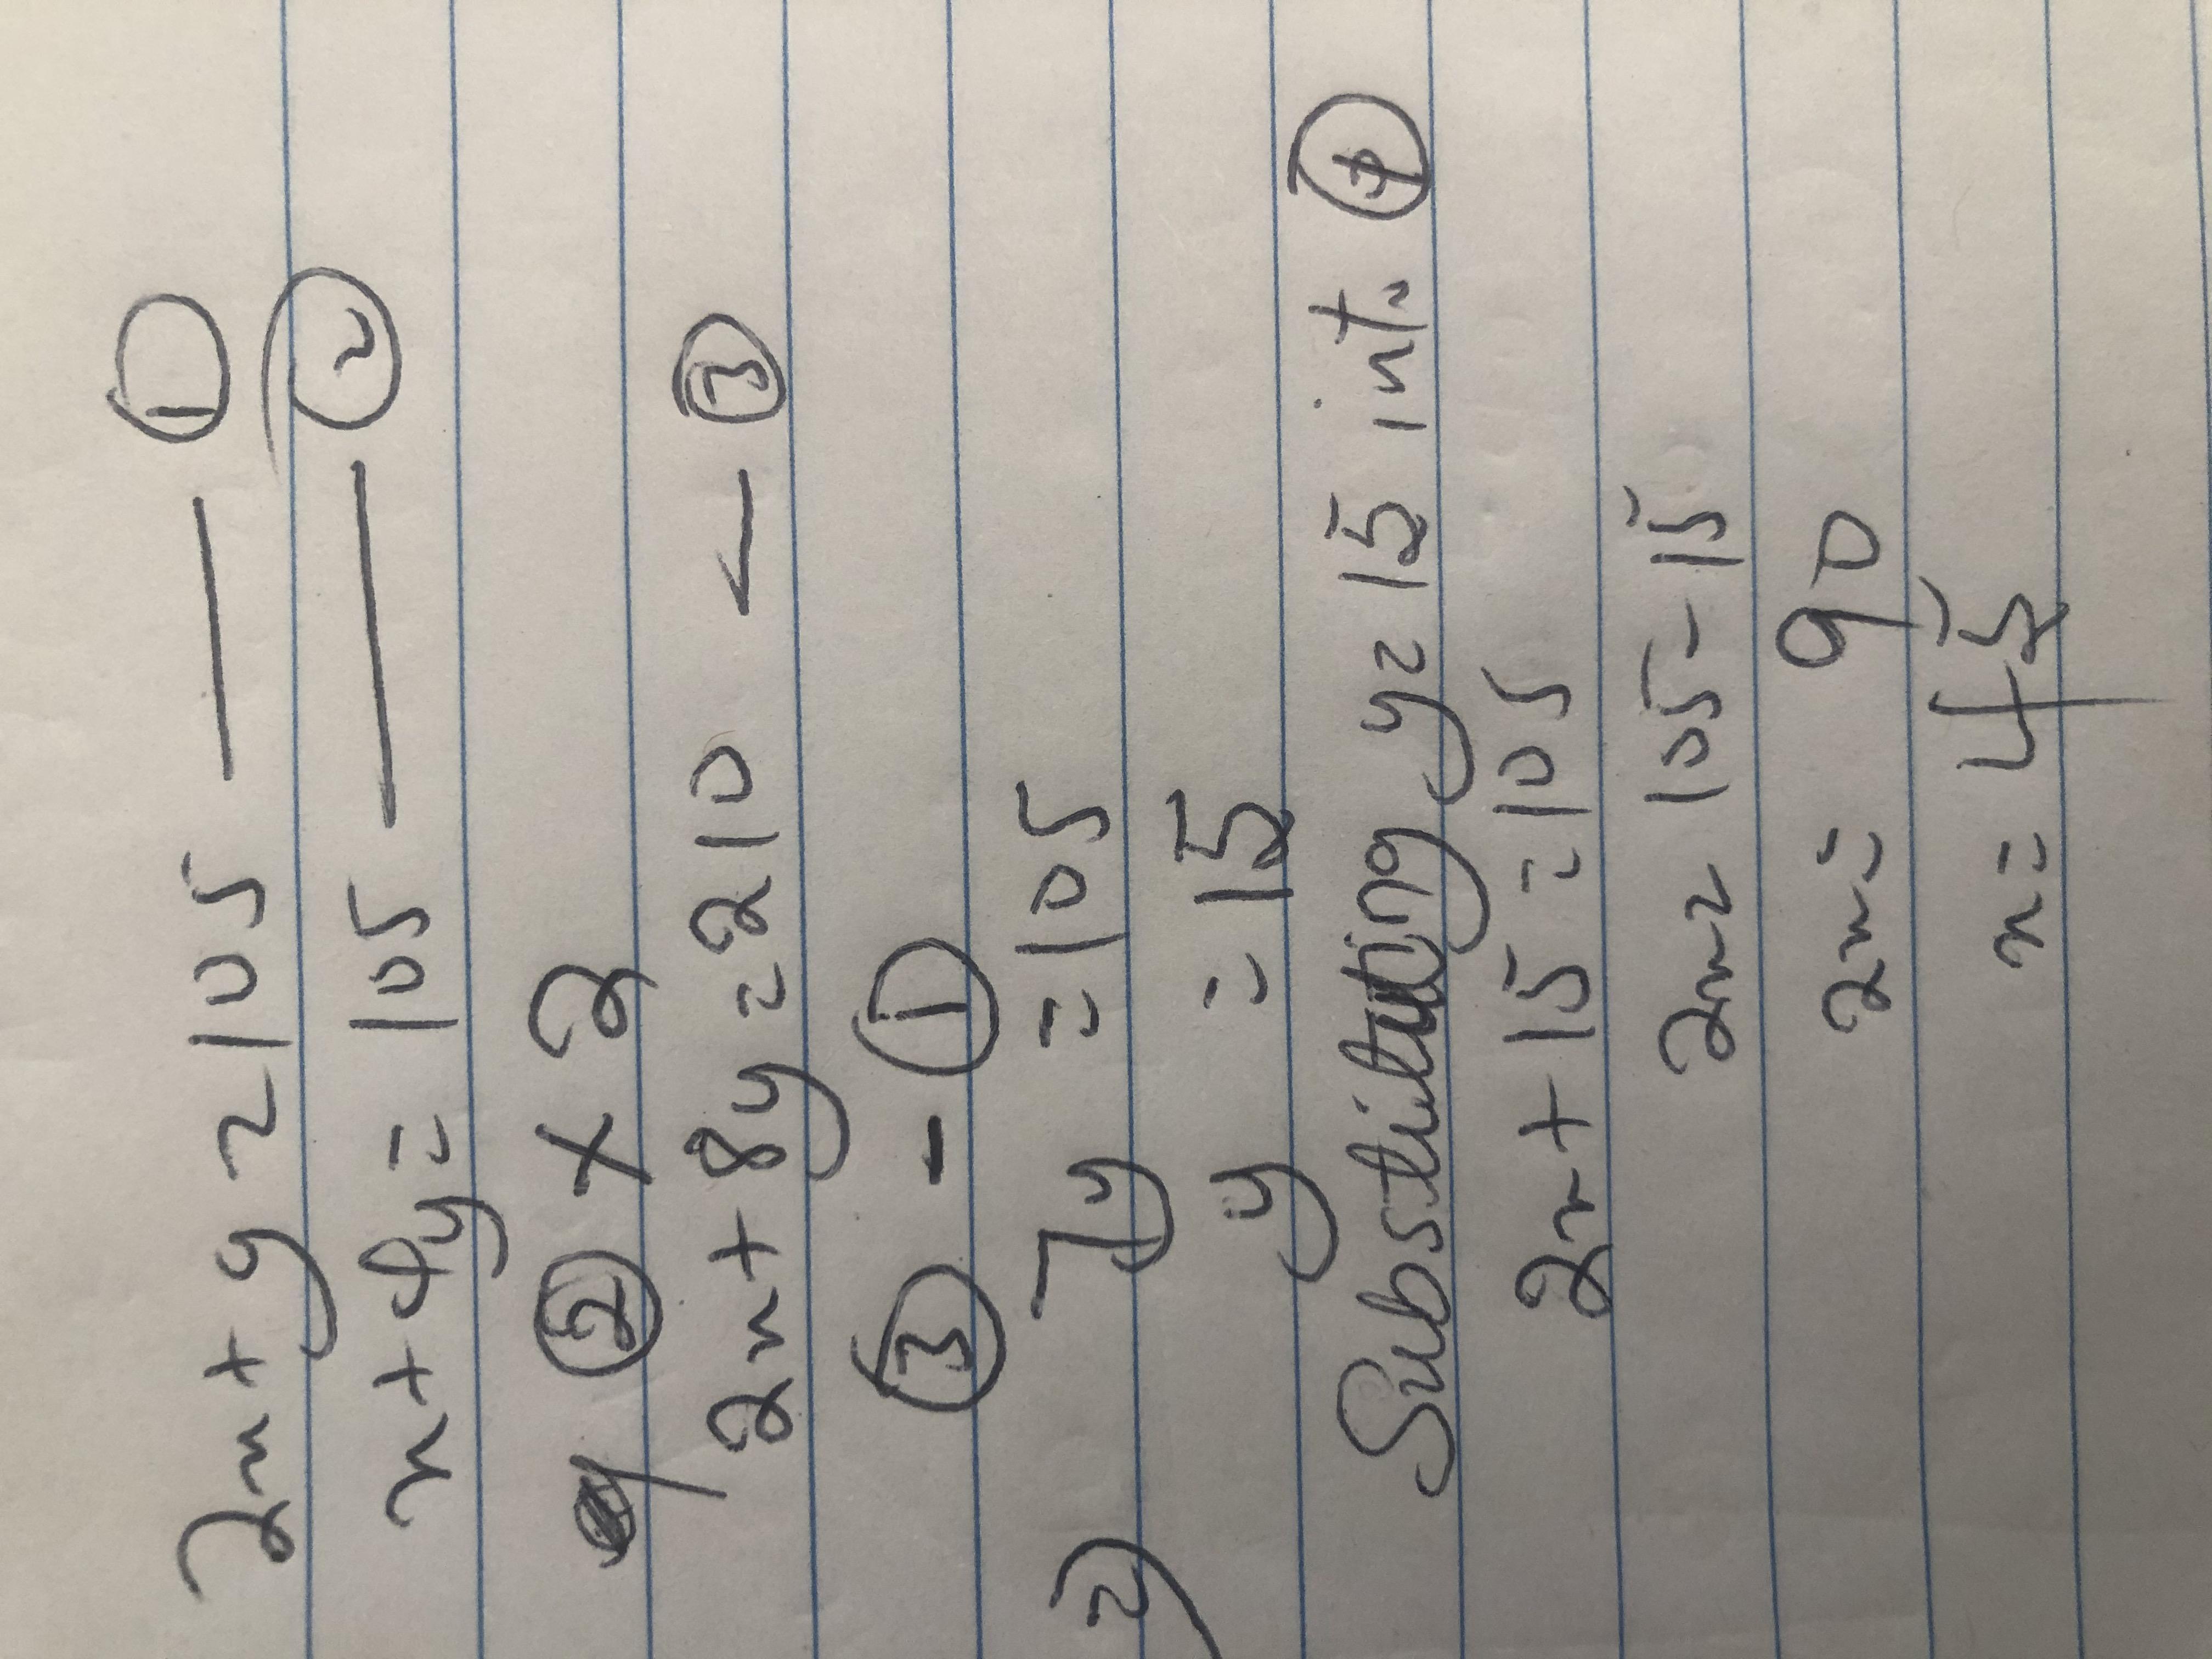 2x + y = 105 —— ①
x + 4y = 105 —— ②
② × 2
2x + 8y = 210 — ③
③ - ①
2) 7y = 105
y = 15
Substituting y = 15 int. ④
2x + 15 = 105
2x = 105 - 15
2x = 90
x = 45